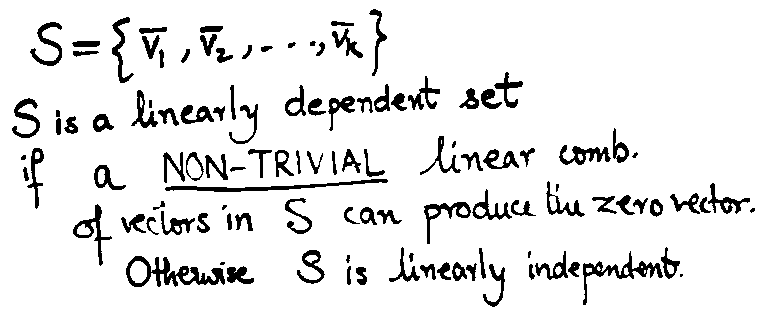 S = { v̅₁ , v̅₂ , . . . , v̅ₖ }
S is a linearly dependent set
if a NON-TRIVIAL linear comb.
of vectors in S can produce the zero vector.
Otherwise S is linearly independent.